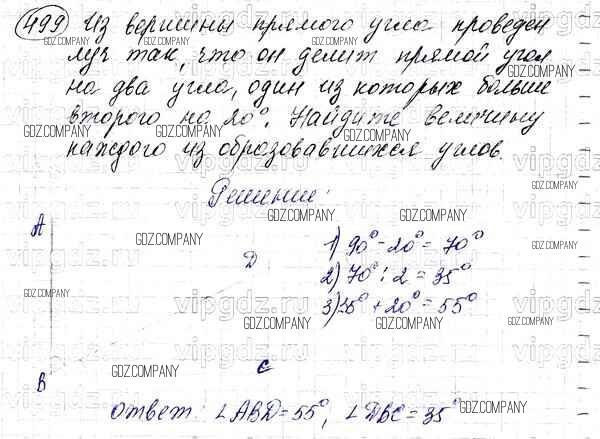 499 Из вершины прямого угла проведен
луч так, что он делит прямой угол
на два угла, один из которых больше
второго на 20°. Найдите величину
каждого из образовавшихся углов.
Решение:
A
D
B
C
1) 90° - 20° = 70°
2) 70° : 2 = 35°
3) 35° + 20° = 55°
ответ: ∠ABD = 55°, ∠DBC = 35°
GDZ.COMPANY
vipgdz.ru